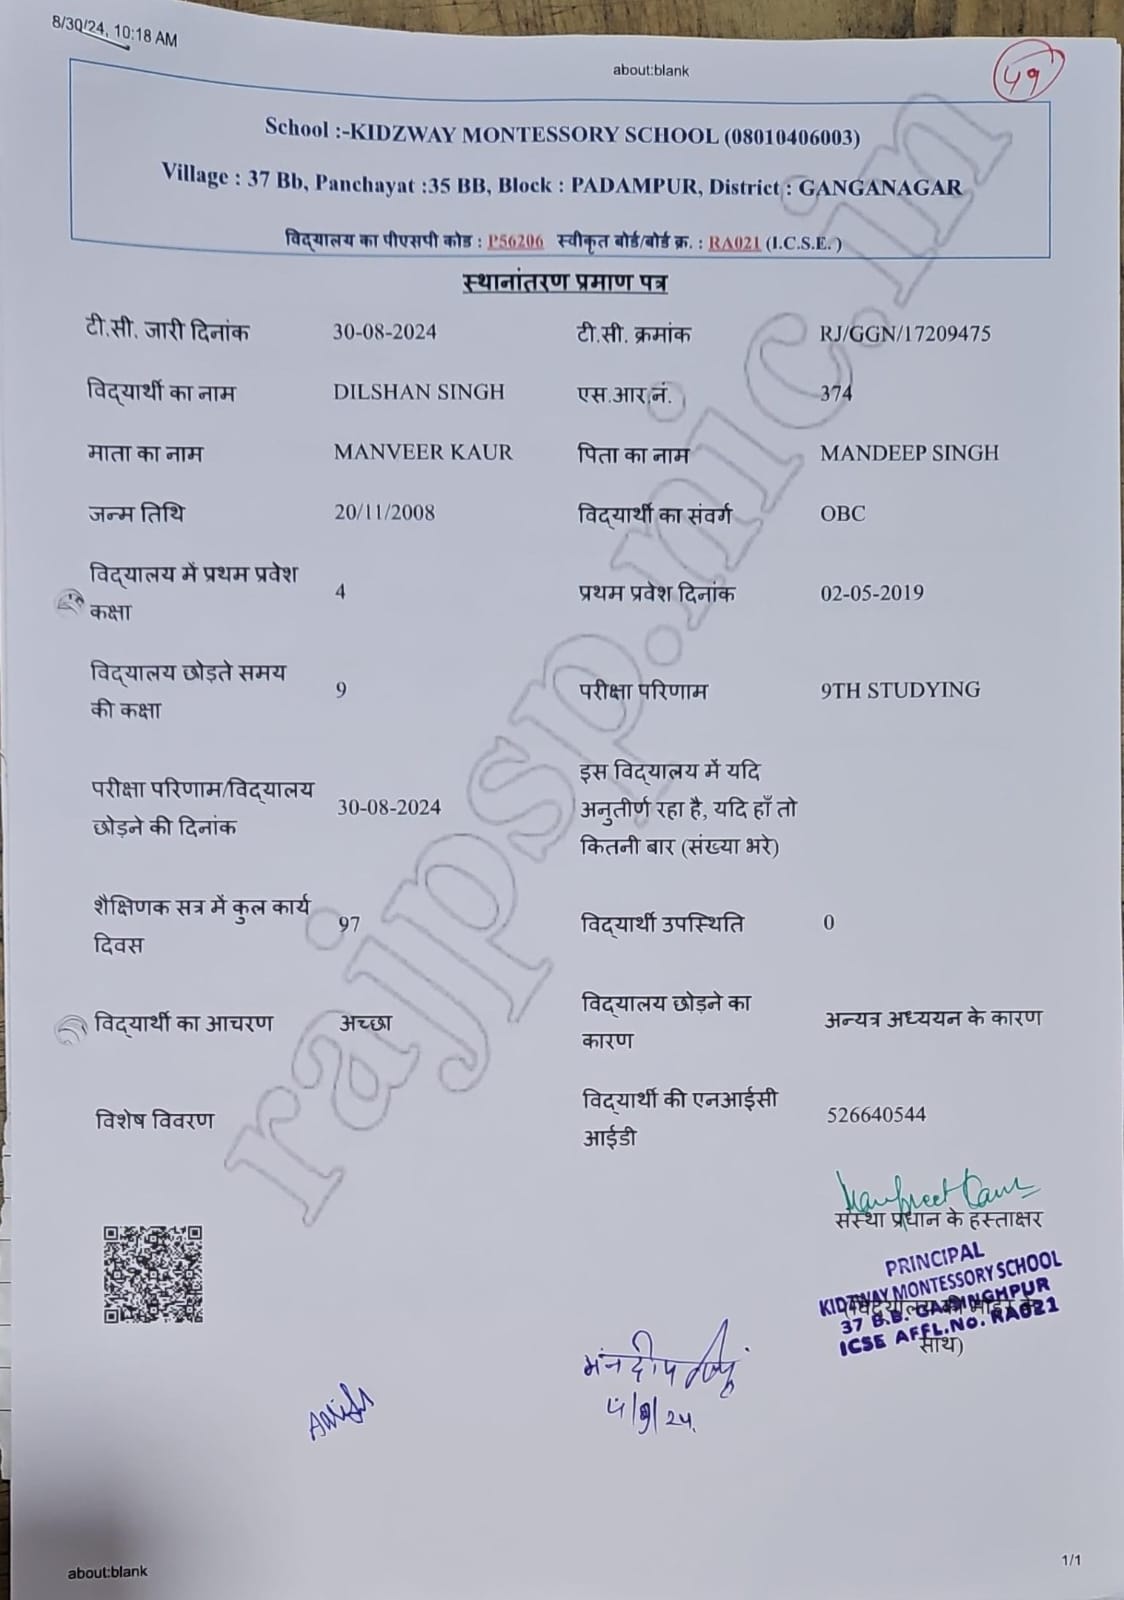 8/30/24, 10:18 AM
about:blank
49
School :-KIDZWAY MONTESSORY SCHOOL (08010406003)
Village : 37 Bb, Panchayat :35 BB, Block : PADAMPUR, District : GANGANAGAR
विद्यालय का पीएसपी कोड : P56206 स्वीकृत बोर्ड/बोर्ड क्र. : RA021 (I.C.S.E. )
स्थानांतरण प्रमाण पत्र
टी.सी. जारी दिनांक 30-08-2024 टी.सी. क्रमांक RJ/GGN/17209475
विद्यार्थी का नाम DILSHAN SINGH एस.आर.नं. 374
माता का नाम MANVEER KAUR पिता का नाम MANDEEP SINGH
जन्म तिथि 20/11/2008 विद्यार्थी का संवर्ग OBC
विद्यालय में प्रथम प्रवेश
कक्षा 4 प्रथम प्रवेश दिनांक 02-05-2019
विद्यालय छोड़ते समय
की कक्षा 9 परीक्षा परिणाम 9TH STUDYING
परीक्षा परिणाम/विद्यालय
छोड़ने की दिनांक 30-08-2024
इस विद्यालय में यदि
अनुतीर्ण रहा है, यदि हाँ तो
कितनी बार (संख्या भरे)
शैक्षिणक सत्र में कुल कार्य
दिवस 97 विद्यार्थी उपस्थिति 0
विद्यार्थी का आचरण अच्छा
विद्यालय छोड़ने का
कारण अन्यत्र अध्ययन के कारण
विशेष विवरण
विद्यार्थी की एनआईसी
आईडी 526640544
rajpsp.nic.in
Manpreet Kaur
संस्था प्रधान के हस्ताक्षर
PRINCIPAL
KIDZWAY MONTESSORY SCHOOL
37 B.B.
ICSE AFFL.NO. RA021
साथ)
मनदीप सिंह
4/9/24
about:blank
1/1